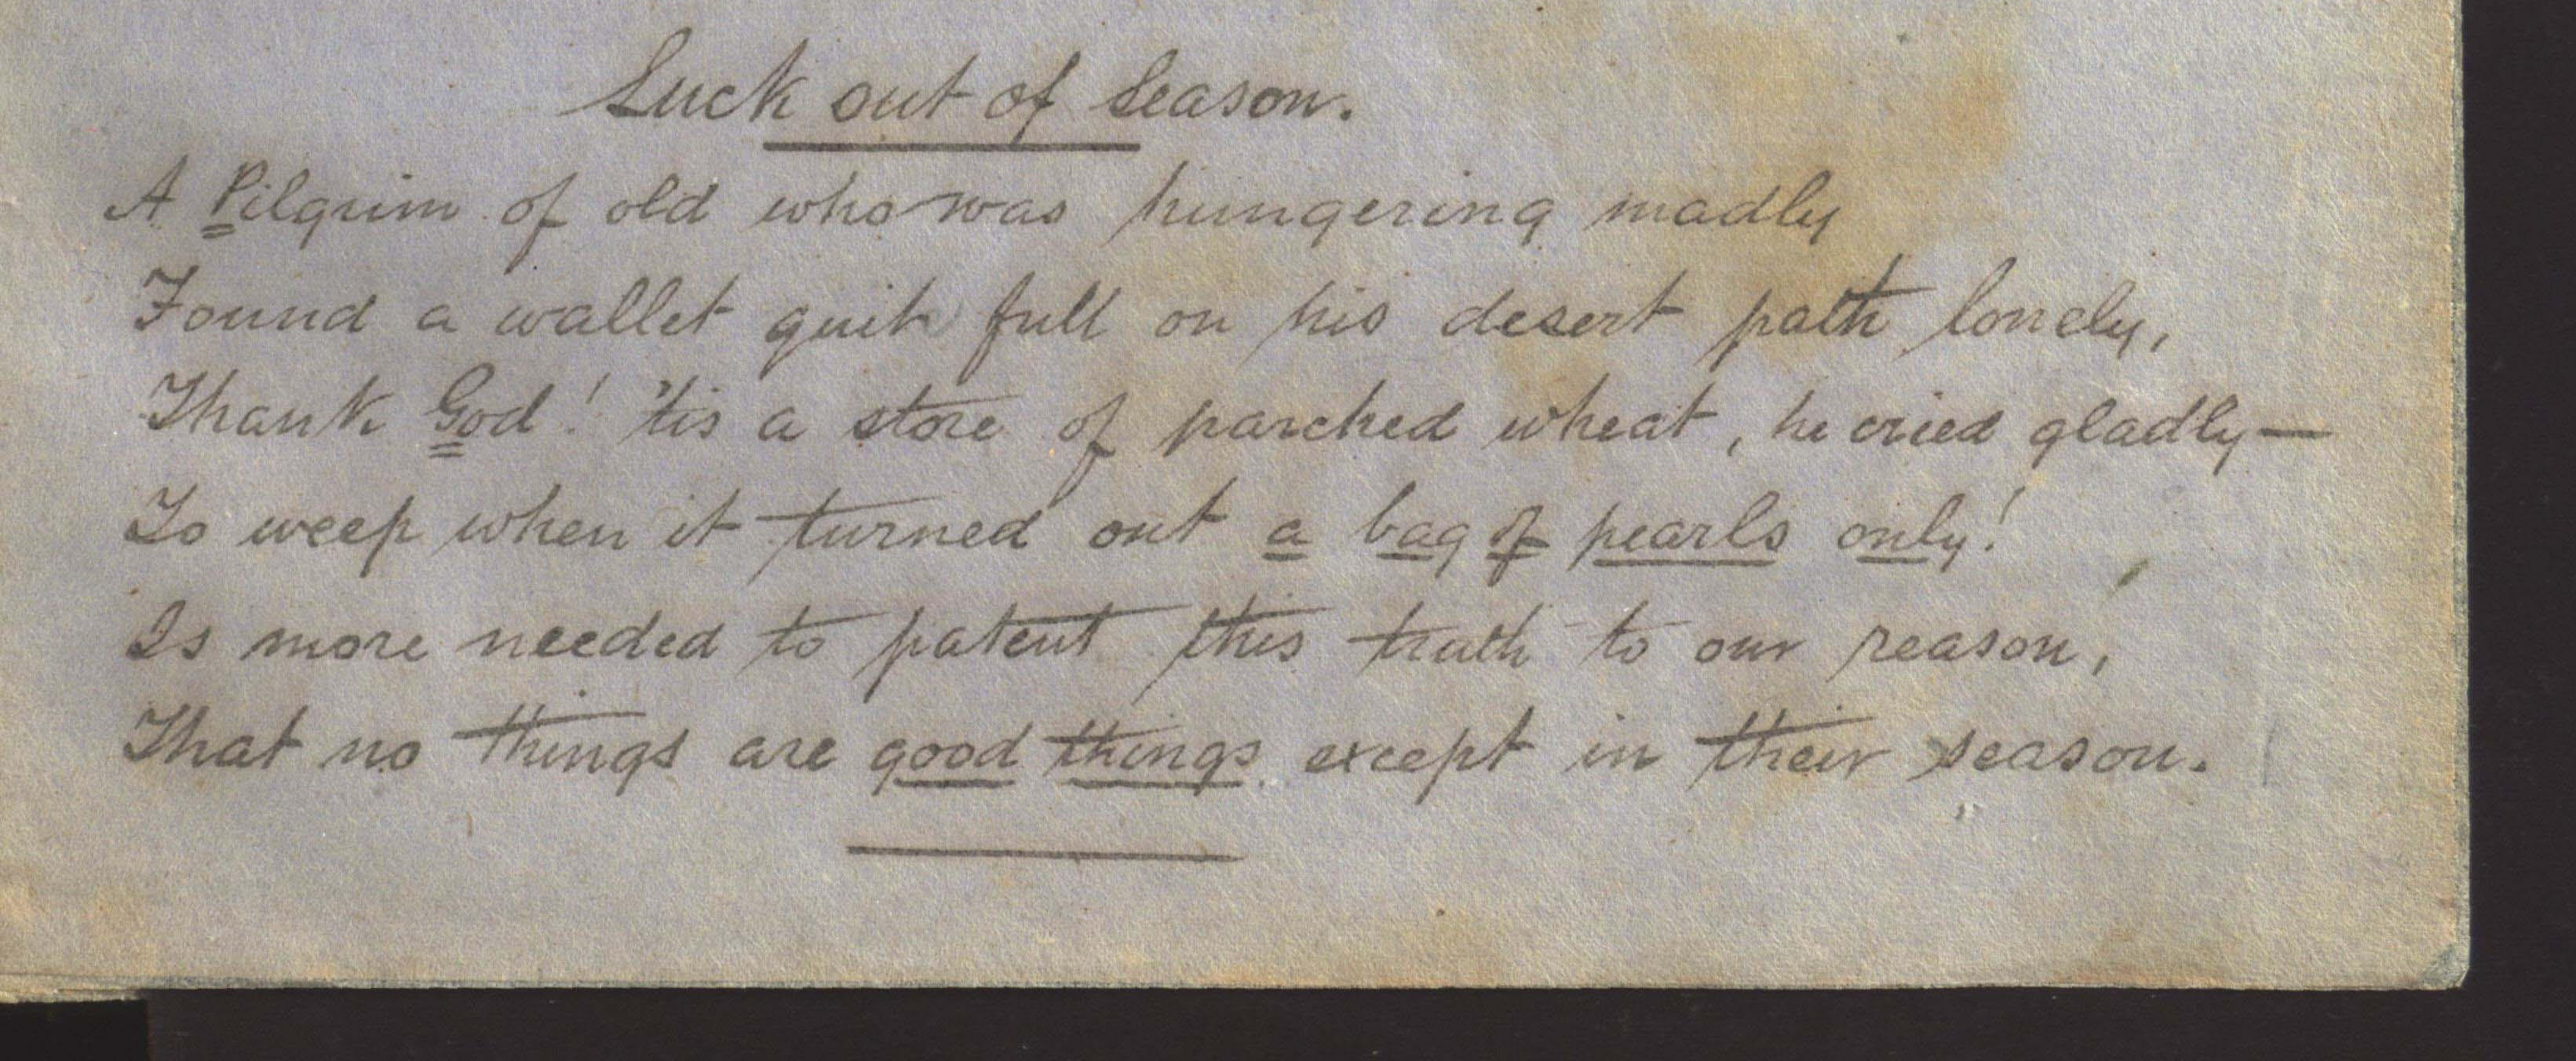 Luck out of Season.
A Pilgrim of old who was hungering madly
Found a wallet quite full on his desert path lonely,
Thank God! 'tis a store of parched wheat, he cried gladly—
To weep when it turned out a bag of pearls only!
Is more needed to patent this truth to our reason,
That no things are good things except in their season.